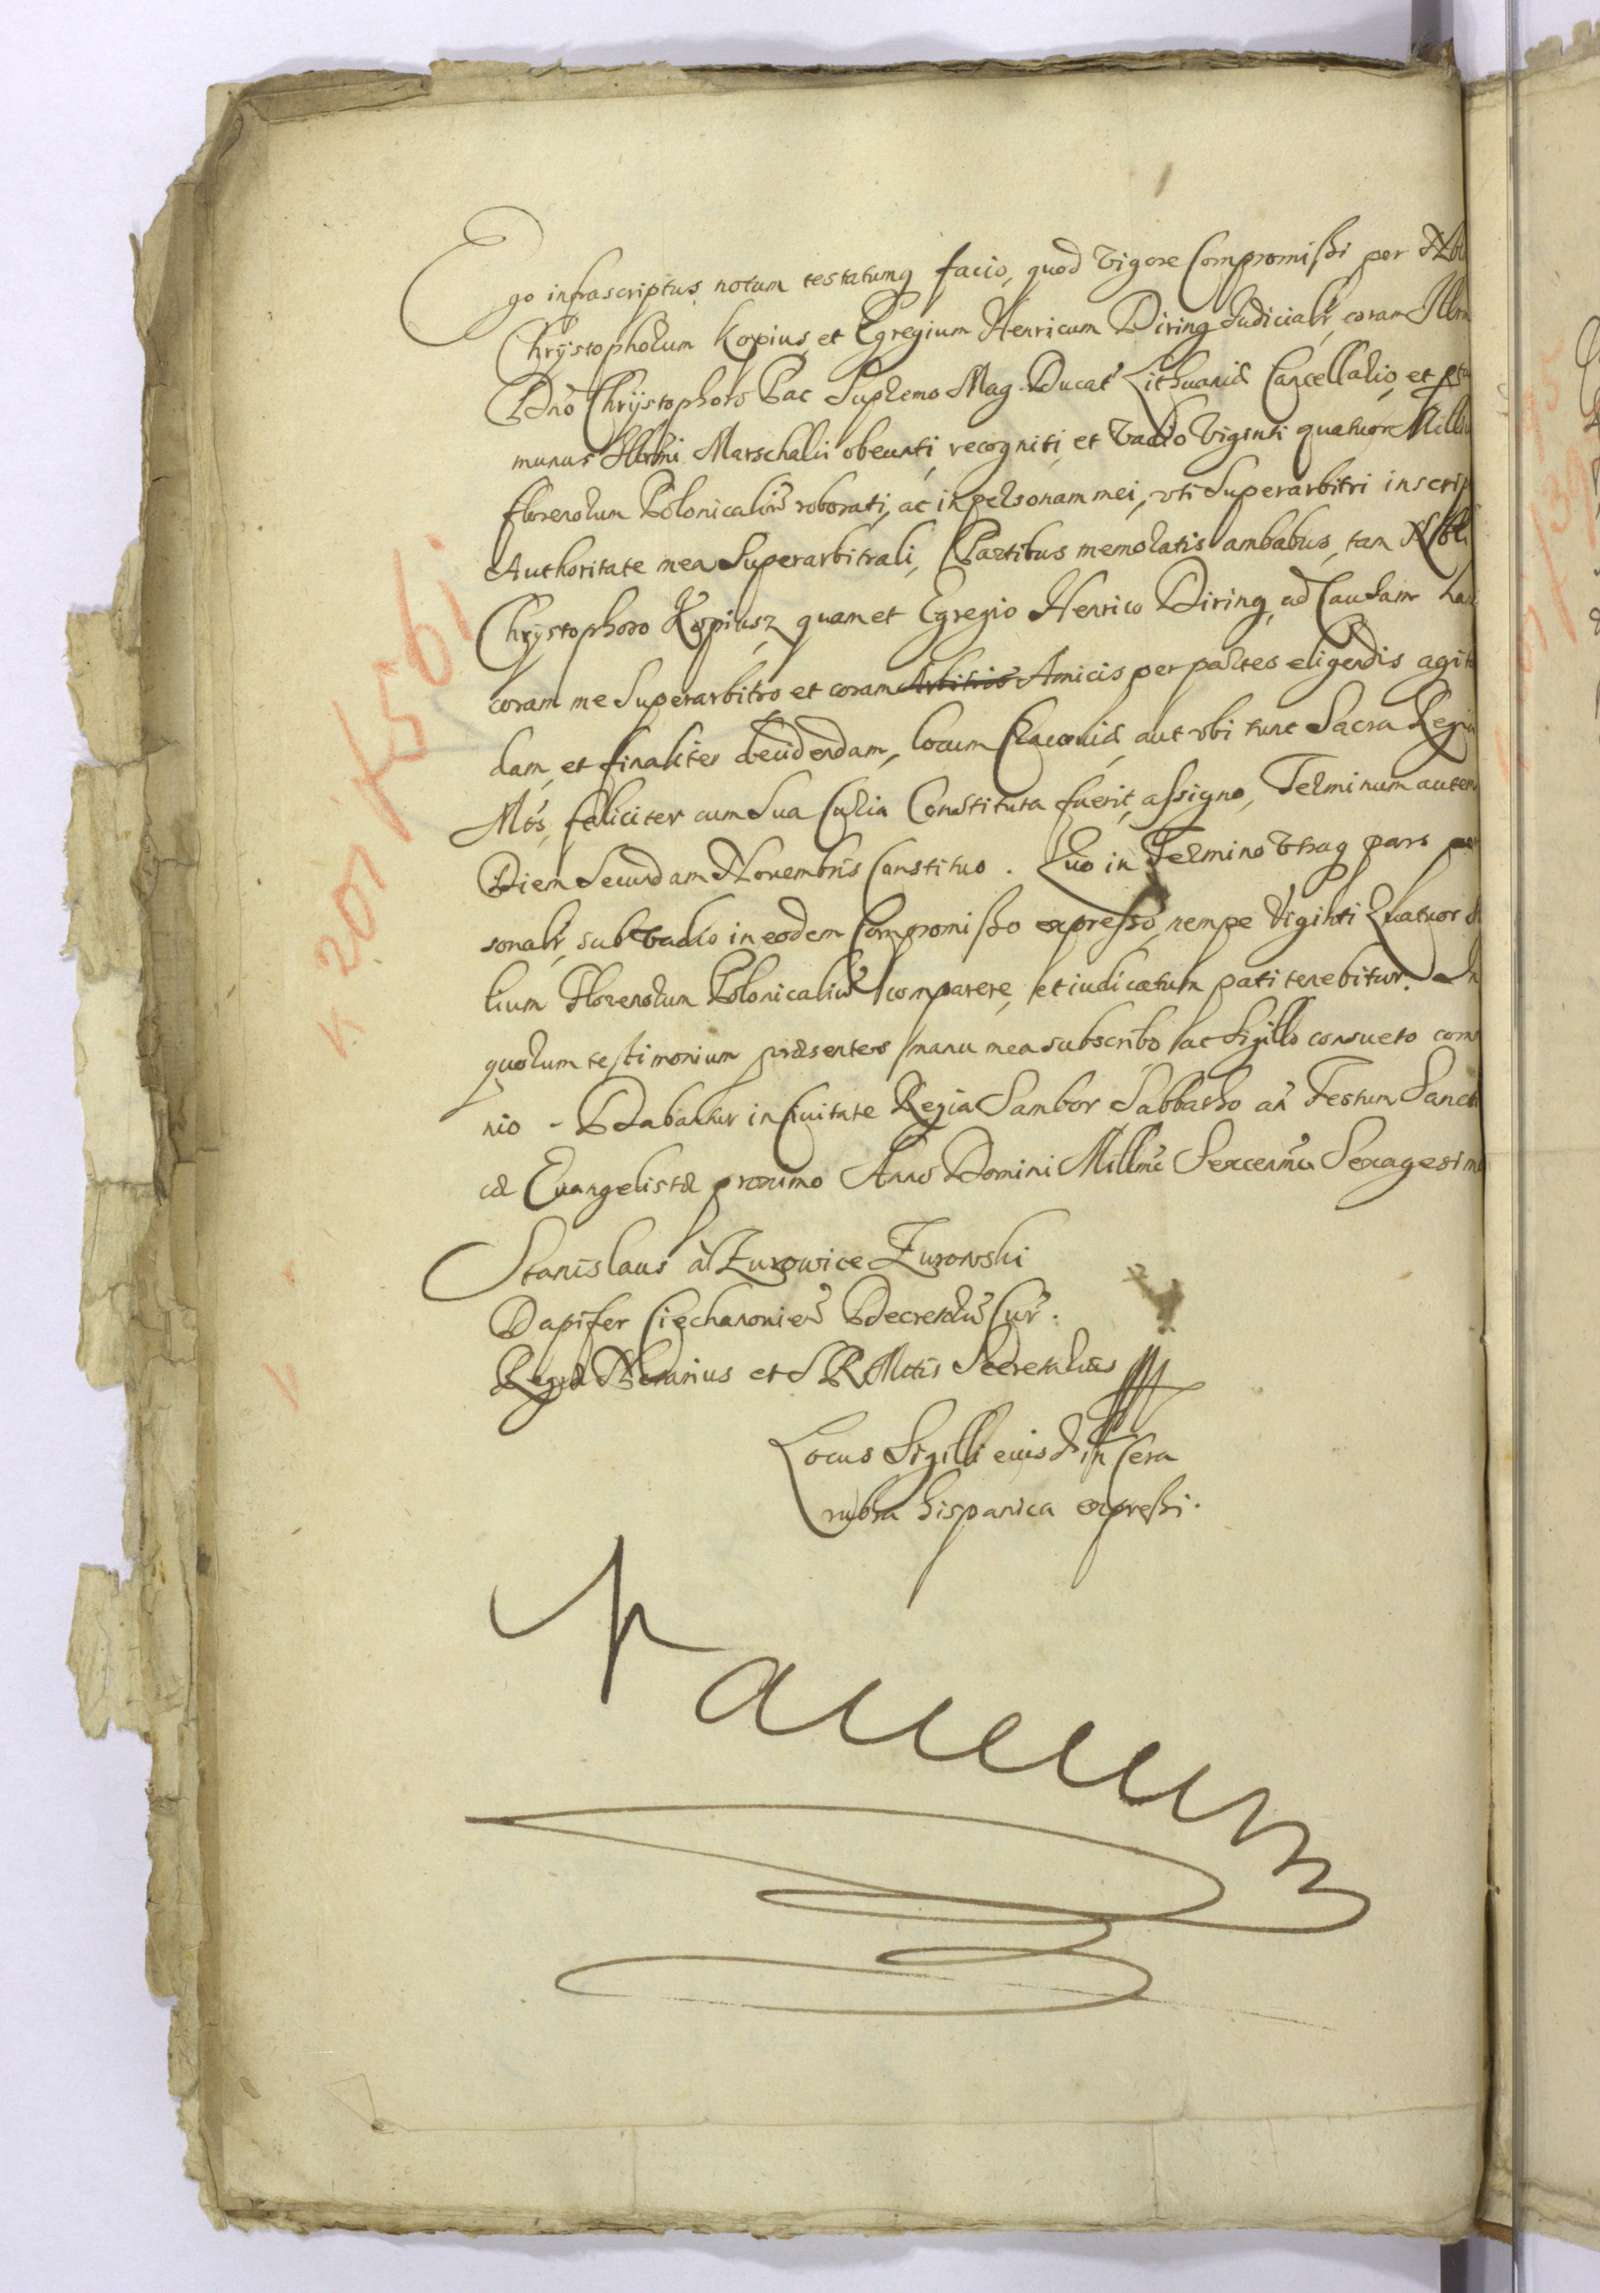 Ego infrascriptus notum testatumq facio, quod vigore Compromissi per Nbi
Chrÿstophorum Kopius, et Egregium Henricum Diring Judicialr, coram Illrm
Dno Chrÿstophoro Pac Supremo Mag. Ducat Lithuaniæ Cancellario, et
munus Illrmi Marschalci obeunti, recogniti, et vadio Viginti quatuor Milliu
florenorum Polonicaliu roborati, ac in personam mei, uti Superarbitri inscrip
Authoritate mea Superarbitrali, Partibus memoratis ambabus, tam Nbli
Chrÿstophoro Kopiusz, quam et Egregio Henrico Diring, ad Causam han
coram me Superarbitro et coram Arbitris Amicis per partes eligendis agita
dam, et finaliter decidendam, locum Cracoviæ, aut ubi tunc Sacra Regia
Mts, feliciter cum Sua Curia Constituta fuerit, assigno, Terminum autem
Diem Secundam Novembris Constituo. Quo in Termino utraq pars per
sonalr, sub vadio in eodem Compromisso expresso, nempe Viginti Quatuor
lium Florenorum Polonicaliu comparere, et iudicatum pati tenebitur. In
quorum testimonium præsentes manu mea subscribo ac Sigillo consueto com
nio - Dabantur in Civitate Regia Sambor Sabbatho an Festum Sancti
cæ Evangelistæ proximo Anno Domini Millmo Sexcenmo Sexagesimo
Stanislaus à Zurowice Zurowski
Dapifer Ciechanonien Decretoru Cur.
Regiæ Notarius et S R Mttis Secretarius
Locus Sigilli eiusd in Cera
rubra hispanica expressi.
K 207 / 1561